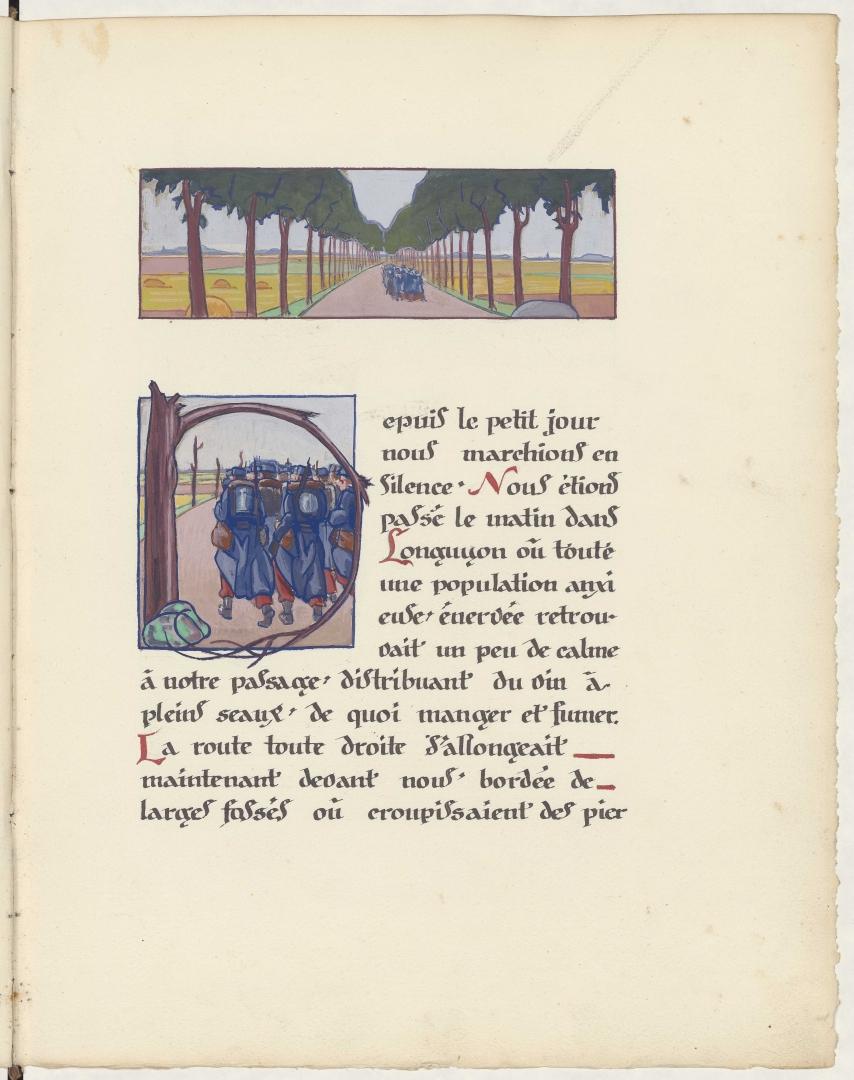 Depuis le petit jour
nous marchions en
silence. Nous étions
passé le matin dans
Longuyon où toute
une population anxi
euse, énervée retrou-
vait un peu de calme
à notre passage, distribuant du vin à
pleins seaux, de quoi manger et fumer.
La route toute droite s'allongeait
maintenant devant nous, bordée de
larges fossés où croupissaient des pier